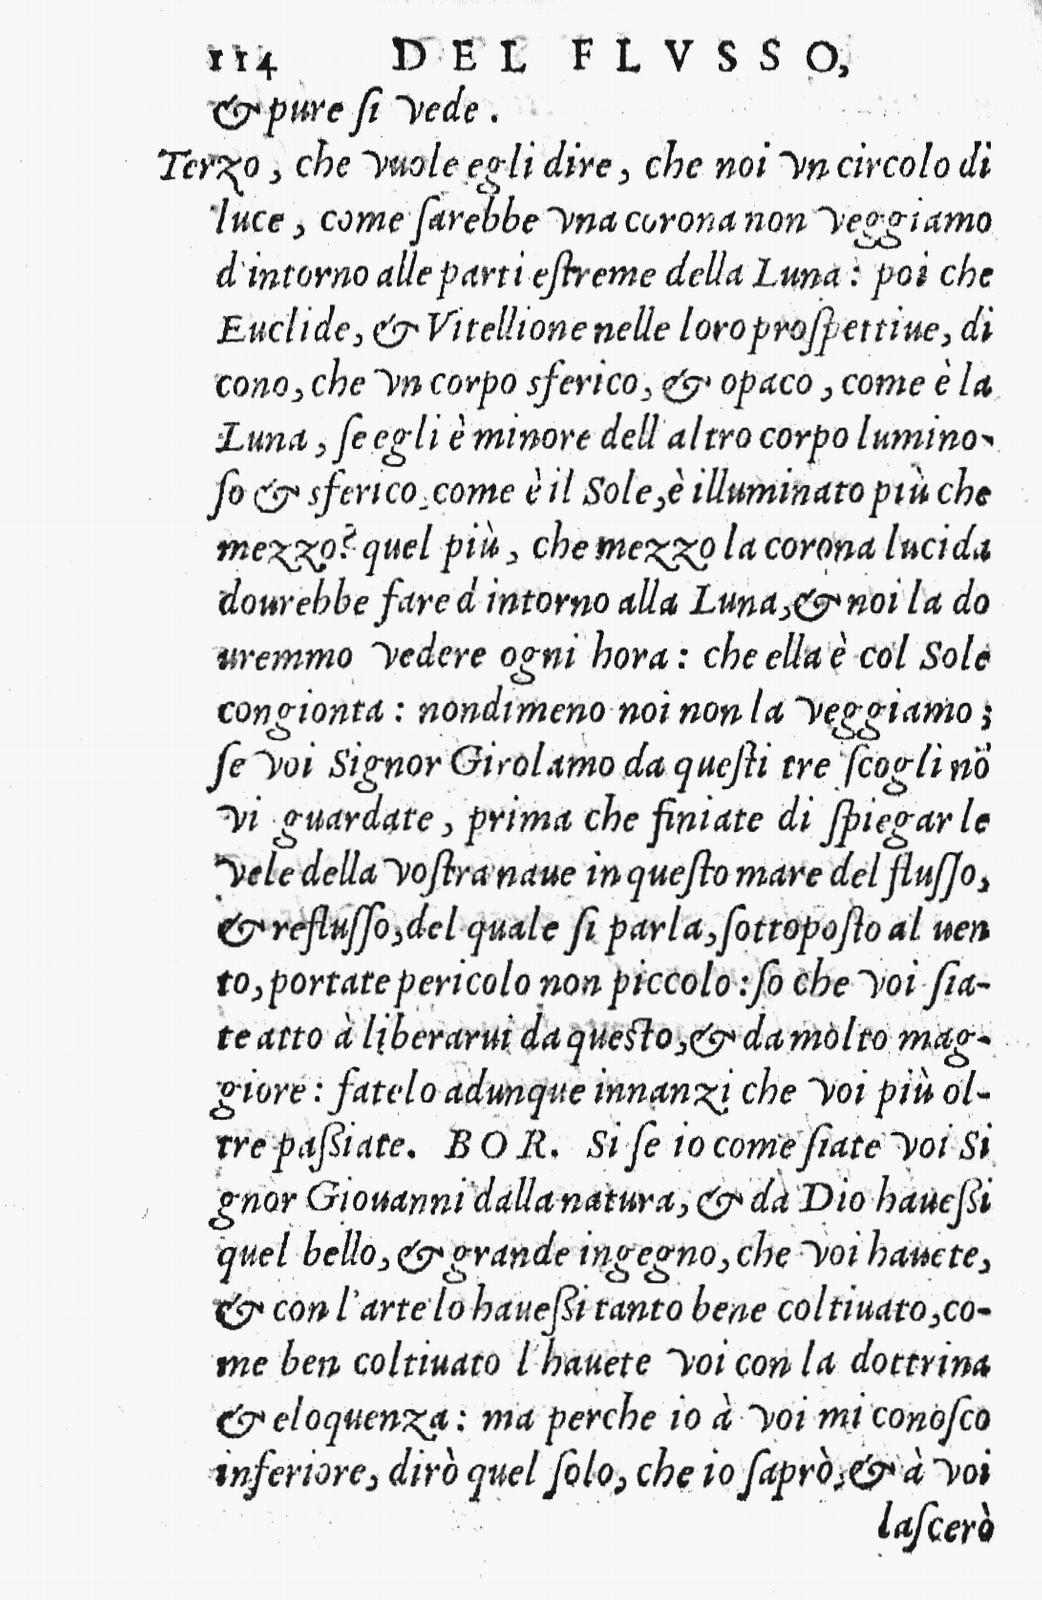 114 DEL FLVSSO,
& pure ſi vede.
Terzo, che vuole egli dire, che noi vn circolo di
luce, come ſarebbe vna corona non veggiamo
d'intorno alle parti eſtreme della Luna: poi che
Euclide, & Vitellione nelle loro proſpettiue, di
cono, che vn corpo sferico, & opaco, come è la
Luna, ſe egli è minore dell altro corpo lumino-
ſo & sferico, come è il Sole, è illuminato più che
mezzo? quel più, che mezzo la corona lucida
dourebbe fare d intorno alla Luna, & noi la do
uremmo vedere ogni hora: che ella è col Sole
congionta: nondimeno noi non la veggiamo;
ſe voi Signor Girolamo da queſti tre ſcogli nō
vi guardate, prima che finiate di ſpiegar le
vele della voſtra naue in queſto mare del fluſſo,
& refluſſo, del quale ſi parla, ſottopoſto al uen
to, portate pericolo non piccolo: ſo che voi ſia-
te atto à liberarui da queſto, & da molto mag-
giore: fatelo adunque innanzi che voi più ol-
tre paſsiate. BOR. Si ſe io come ſiate voi Si
gnor Giouanni dalla natura, & da Dio haueſsi
quel bello, & grande ingegno, che voi hauete,
& con l'arte lo haueſsi tanto bene coltiuato, co-
me ben coltiuato l'hauete voi con la dottrina
& eloquenza: ma perche io à voi mi conoſco
inferiore, dirò quel ſolo, che io ſaprò, & à voi
laſcerò